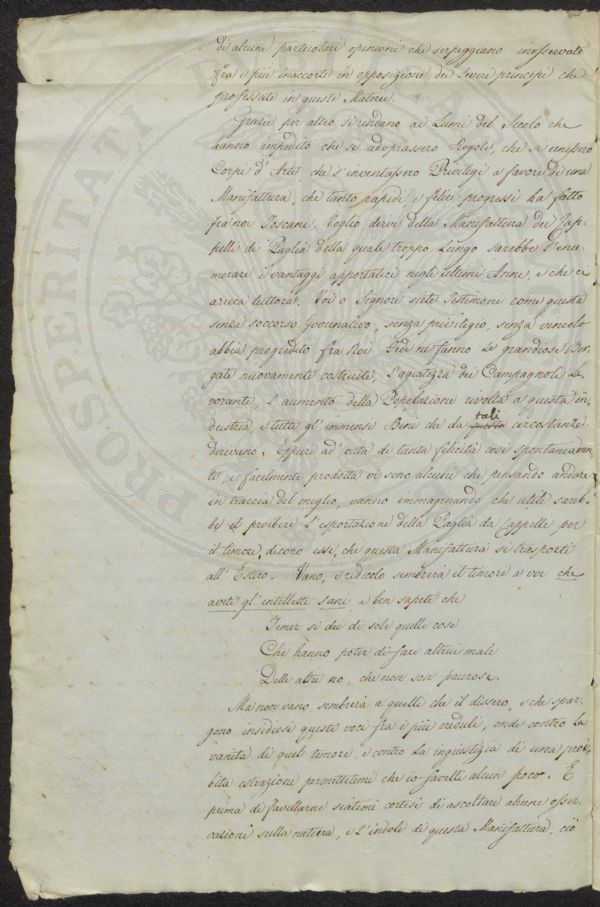 di alcune particolari opinioni che serpeggiano inosservate
fra i più inaccorti in opposizione dei severi principi che
professate in queste Materie.
Grazie per altro si rendano ai Lumi del Secolo che
hanno impedito che si adoprassero Regole, che si unissero
Corpi d'Arte che s'inventassero Privilegi a favore di una
Manifattura, che tanto rapidi e felici progressi ha fatto
fra noi Toscani. Voglio dirvi della Manifattura dei Cap-
pelli di Paglia della quale troppo Lungo sarebbe l'enu-
merare i vantaggi apportatici negli ultimi Anni, e che ci
arreca tuttora. Voi o Signori siete Testimoni come questa
senza soccorso Governativo, senza privilegio, senza vincolo
abbia progredito fra Noi. Fede ne fanno le grandiose Bor-
gate nuovamente costruite, l'agiatezza dei Campagnoli La-
voranti, l'aumento della Popolazione rivolta a questa in-
dustria e tutti gl'immensi Beni che da tali circostanze
derivano. Eppure ad onta di tanta felicità così spontaneamen-
te, e facilmente prodotta vi sono alcuni che pensando andare
in traccia del meglio, vanno immaginando che utile sareb-
be il proibire l'esportazione della Paglia da Cappelli per
il timore, dicono essi, che questa Manifattura si trasporti
all'Estero. Vano, e ridicolo sembrerà il timore a voi che
avete gl'intelletti sani, e ben sapete che
Temer si dee di sole quelle cose
Che hanno poter di fare altrui male
Delle altre no, che non son paurose.
Ma non vano sembrerà a quelli che il dissero, e che spar-
gono insidiose queste voci fra i più creduli, onde contro la
vanità di quel timore, e contro la ingiustizia di una proi-
bita estrazione permettetemi che io favelli alcun poco. E
prima di favellarne siatemi cortesi di ascoltare alcune osser-
vazioni sulla natura, e l'indole di questa Manifattura, ciò
PROSPERITATI